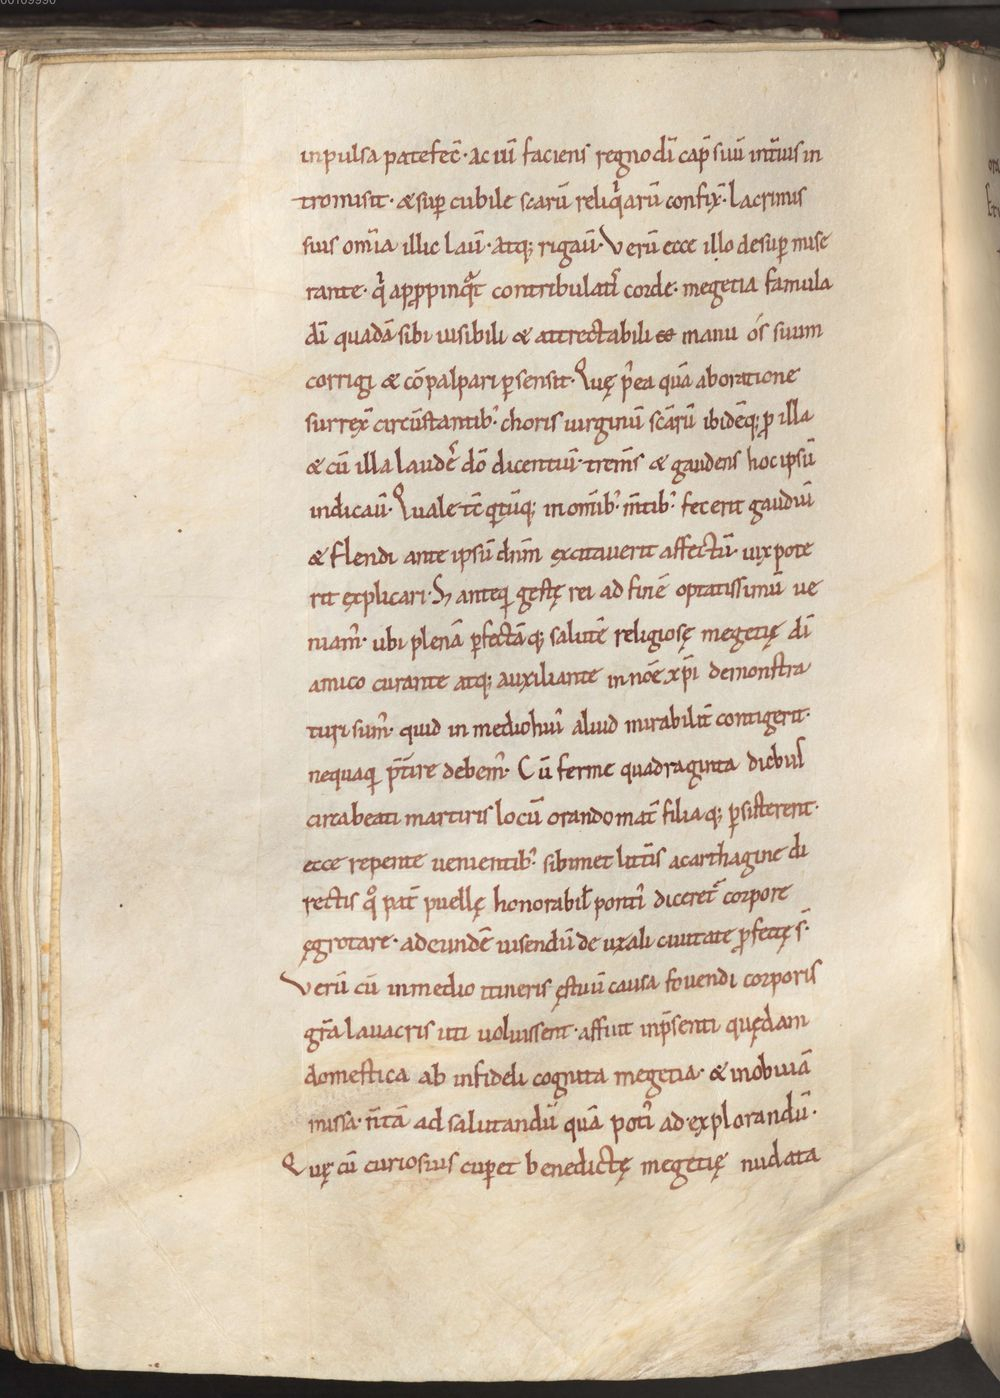 00109990
inpulsa patefec̄· ac uī faciens regno dī cap̄ suū int̄ius in
tromisit· & sup̲ cubile scarū reliq̄arū confix̄· lacrimis
suis om̄ia illic lauī· atq; rigauī· Verū ecce illo desup̲ mise
rante· q̄ app̲pinq̄t contribulatī corde· megetia famula
dī quadā sibi uisibili & attrectabili manu ós suum
corrigi & cōpalpari p̲sensit· Quę p̄ea quā ab oratione
surręx̄ circūstantib; choris uirginū scārū ibidēq; p̲ illa
& cū illa laudē dō dicentiū· trem̄s & gaudens hoc ipsū
indicauī· Quale tc̄ qtūq; in om̄ib; m̄tib; fecerit gaudiū
& flendi ante ipsū dn̄m excitauerit affectū· uix pote
rit explicari· S; anteq̄ gestę rei ad finē optatissimū ue
niam̄· ubi plenā p̲fectāq; salutē religiosę megetię dī
amico curante atq; auxiliante in nōe xp̄i demonstra
turi sum̄· quid in medio huī aliud mirabilit̄ contigerit·
nequaq̄ p̄t̄ire debem̄· Cū ferme quadraginta diebus
circa beati martiris locū orando mat̄ filiaq; p̲sisterent·
ecce repente uenientib; sibimet litt̄is a carthagine di
rectis q̊ pat̄ puellę honorabil̄ pontī diceret̄ corpore
ęgrotare· ad eundē uisendū de uzali ciuitate p̲fectę s̄·
Verū cū in medio itineris ęstiuū causa fouendi corporis
gr̄a lauacris uti uoluissent· affuit inp̄senti quędam
domestica ab infideli cognita megetia· & in obuiā
missa· n̄ tā ad salutandū quā potī ad explorandū·
Quę cū curiosius cup̲et benedictę megetię nudata